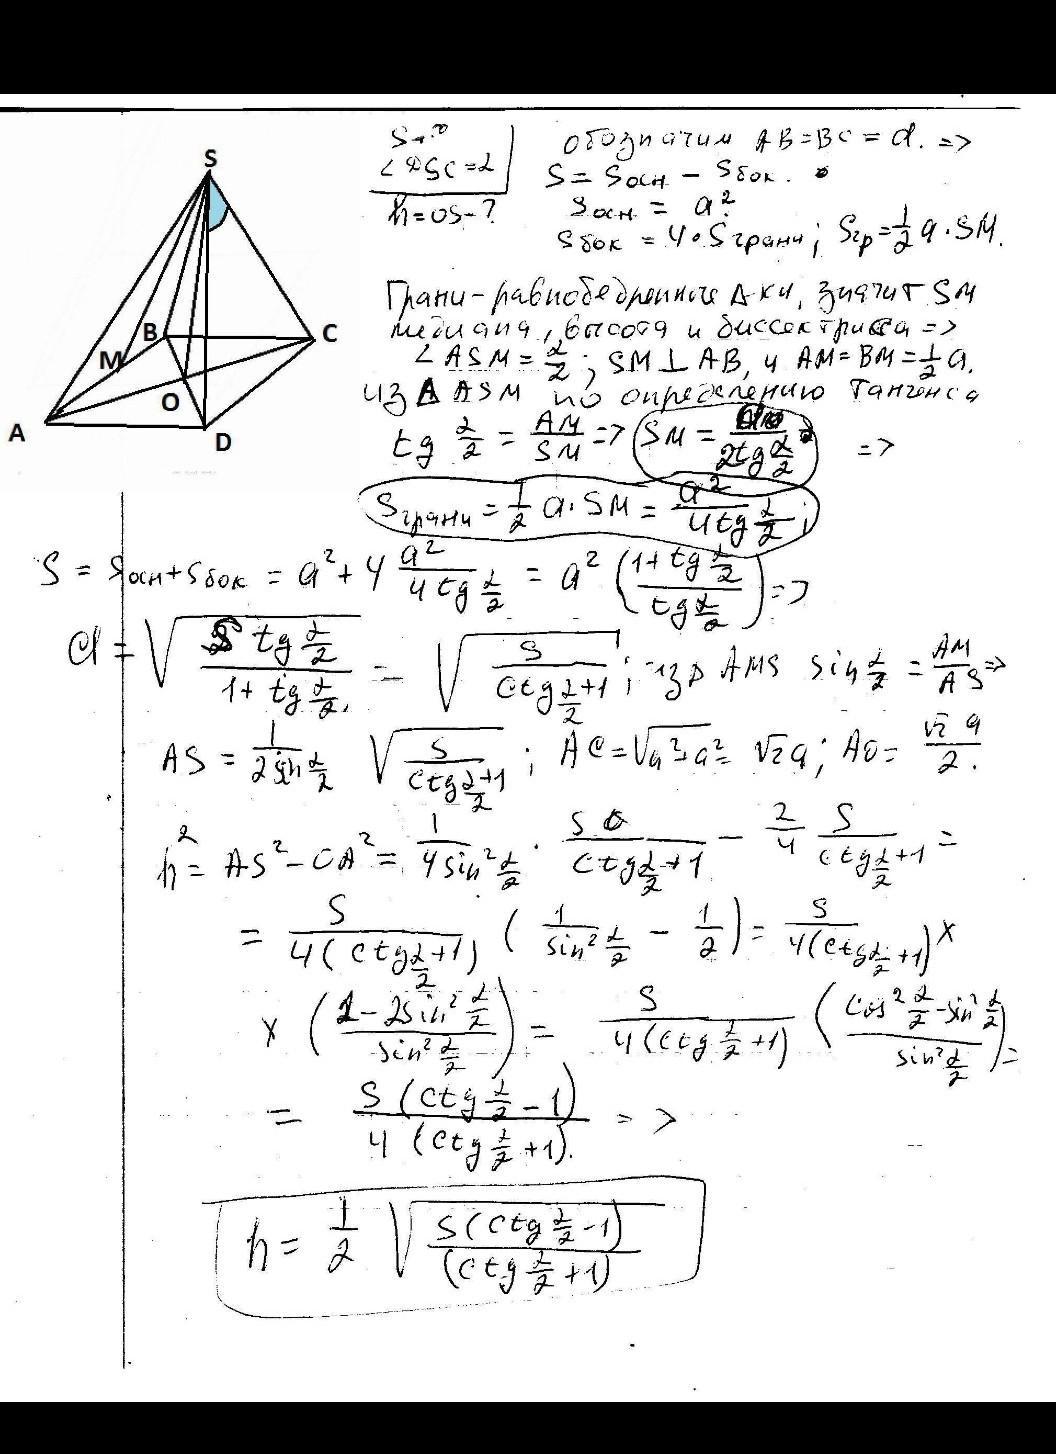 S
B
C
M
O
A
D
S - ?
∠DSC = α
h = OS - ?
обозначим AB = BC = a. =>
S = Sосн - Sбок.
Sосн = a².
Sбок = 4 · Sграни; Sгр = 1/2 a · SM.
Грани - равнобедренные Δки, значит SM
медиана, высота и биссектрисса =>
∠ASM = α/2; SM ⊥ AB, и AM = BM = 1/2 a.
из Δ ASM по определению тангенса
tg α/2 = AM/SM => SM = a/(2tg α/2) =>
Sграни = 1/2 a · SM = a²/(4tg α/2);
S = Sосн + Sбок = a² + 4 a²/(4tg α/2) = a² ((1 + tg α/2)/(tg α/2)) =>
a = √((S tg α/2)/(1 + tg α/2)) = √(S/(ctg α/2 + 1)); из Δ AMS sin α/2 = AM/AS =>
AS = 1/(2 sin α/2) √(S/(ctg α/2 + 1)); AC = √(a² + a²) = √2 a; AO = √2 a/2.
h² = AS² - OA² = 1/(4 sin² α/2) · S/(ctg α/2 + 1) - 2/4 S/(ctg α/2 + 1) =
= S/(4(ctg α/2 + 1)) (1/(sin² α/2) - 1/2) = S/(4(ctg α/2 + 1)) ×
× ((1 - 2sin² α/2)/(sin² α/2)) = S/(4(ctg α/2 + 1)) ((cos² α/2 - sin² α/2)/(sin² α/2)) =
= S(ctg α/2 - 1)/(4(ctg α/2 + 1)). =>
h = 1/2 √(S(ctg α/2 - 1)/(ctg α/2 + 1))